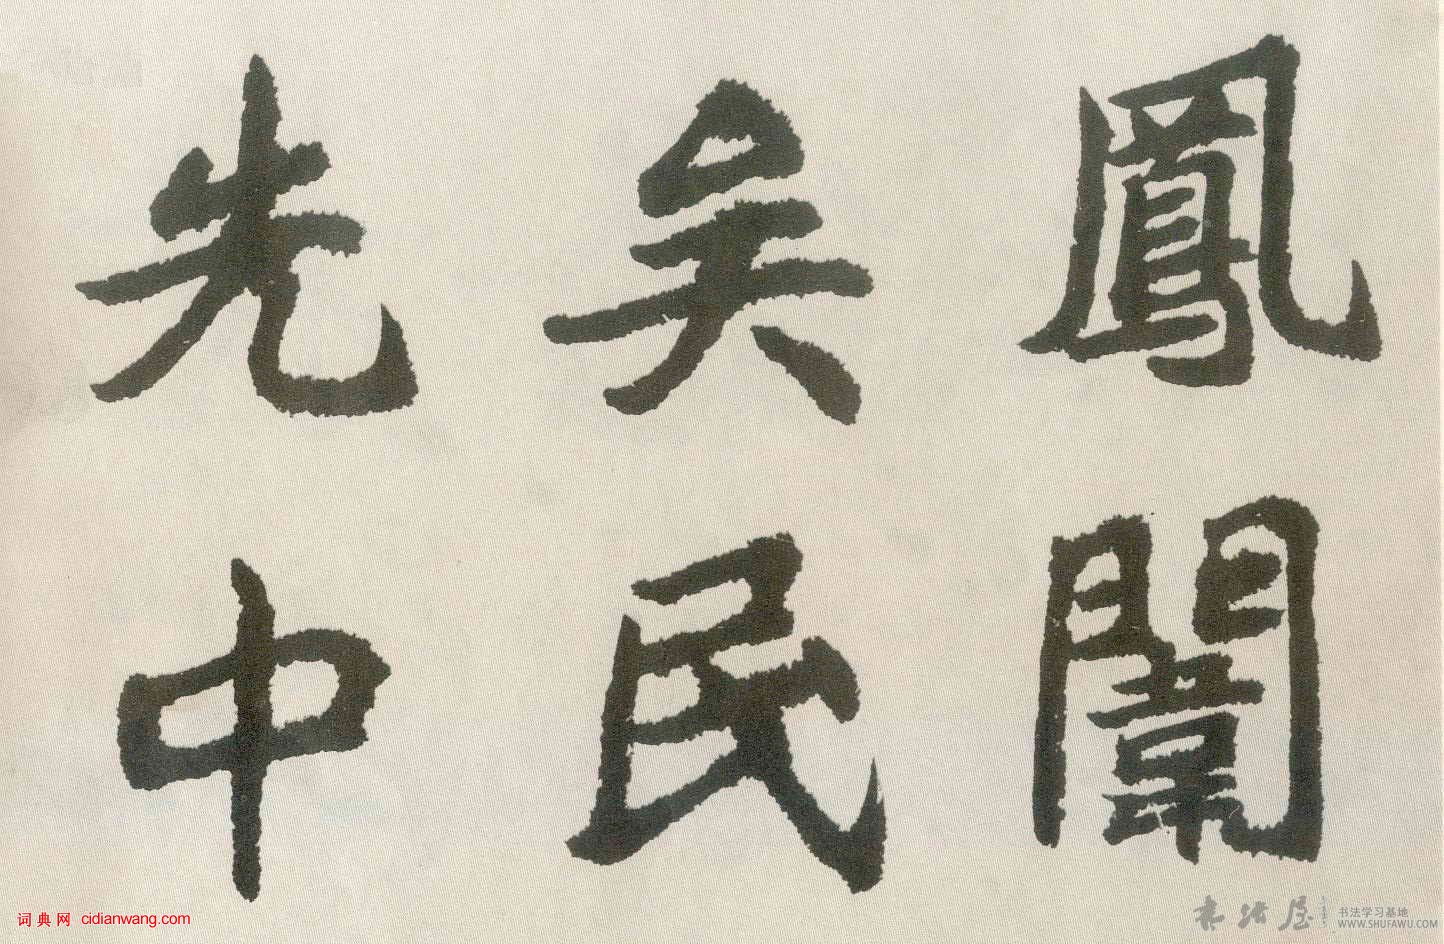 鳳闈
矣民
先中
词典网 cidianwang.com
书法屋
书法学习基地
WWW.SHUFAWU.COM